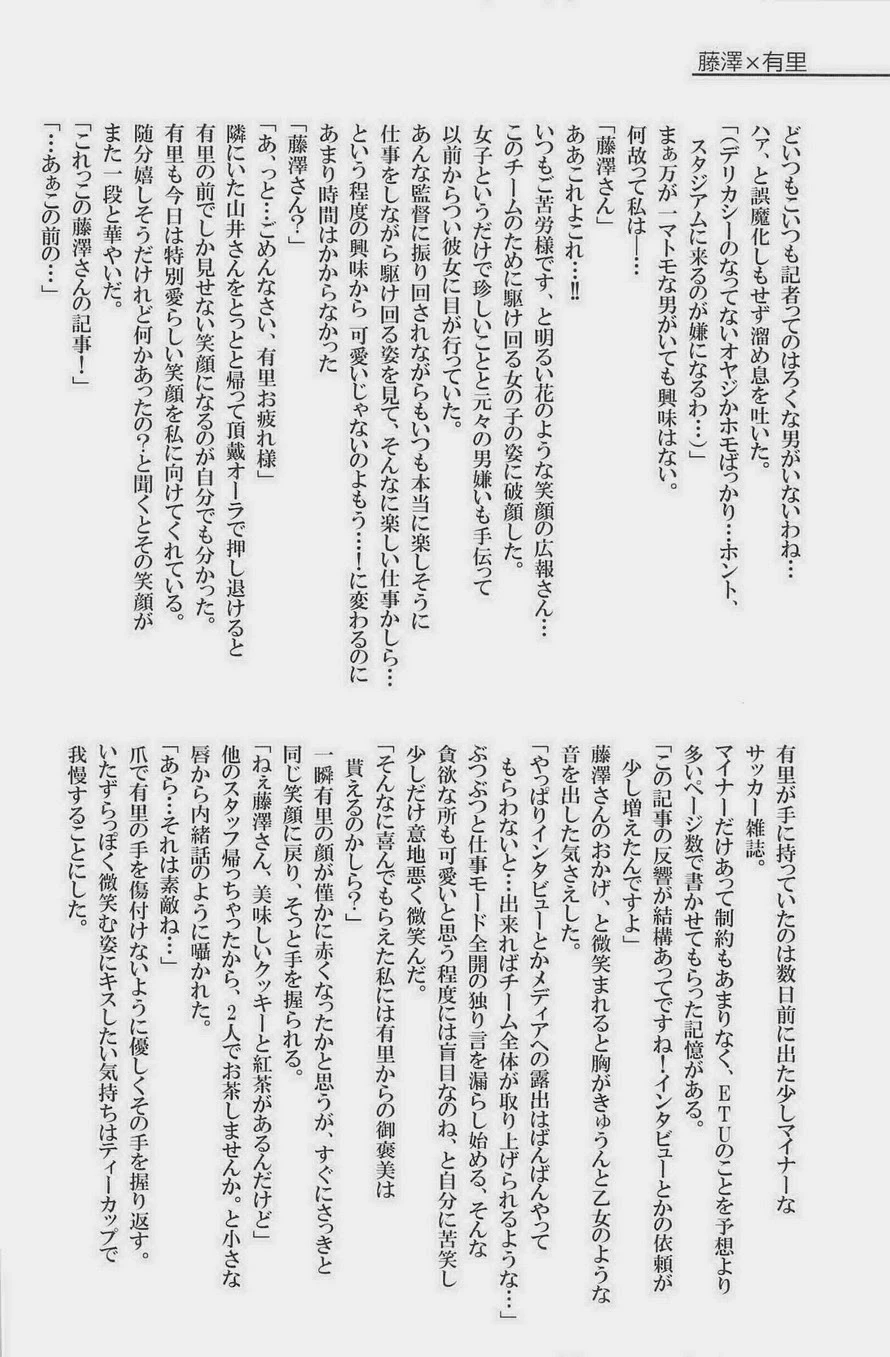 藤澤×有里
どいつもこいつも記者ってのはろくな男がいないわね…
ハァ、と誤魔化しもせず溜め息を吐いた。
「(デリカシーのなってないオヤジかホモばっかり…ホント、
スタジアムに来るのが嫌になるわ…)」
まぁ万が一マトモな男がいても興味はない。
何故って私は―…
「藤澤さん」
ああこれよこれ…!!
いつもご苦労様です、と明るい花のような笑顔の広報さん…
このチームのために駆け回る女の子の姿に破顔した。
女子というだけで珍しいことと元々の男嫌いも手伝って
以前からつい彼女に目が行っていた。
あんな監督に振り回されながらもいつも本当に楽しそうに
仕事をしながら駆け回る姿を見て、そんなに楽しい仕事かしら…
という程度の興味から 可愛いじゃないのよもう…!に変わるのに
あまり時間はかからなかった
「藤澤さん?」
「あ、っと…ごめんなさい、有里お疲れ様」
隣にいた山井さんをとっとと帰って頂戴オーラで押し退けると
有里の前でしか見せない笑顔になるのが自分でも分かった。
有里も今日は特別愛らしい笑顔を私に向けてくれている。
随分嬉しそうだけれど何かあったの?と聞くとその笑顔が
また一段と華やいだ。
「これっこの藤澤さんの記事!」
「…あぁこの前の…」
有里が手に持っていたのは数日前に出た少しマイナーな
サッカー雑誌。
マイナーだけあって制約もあまりなく、ETUのことを予想より
多いページ数で書かせてもらった記憶がある。
「この記事の反響が結構あってですね!インタビューとかの依頼が
少し増えたんですよ」
藤澤さんのおかげ、と微笑まれると胸がきゅうんと乙女のような
音を出した気さえした。
「やっぱりインタビューとかメディアへの露出はばんばんやって
もらわないと…出来ればチーム全体が取り上げられるような…」
ぶつぶつと仕事モード全開の独り言を漏らし始める、そんな
貪欲な所も可愛いと思う程度には盲目なのね、と自分に苦笑し
少しだけ意地悪く微笑んだ。
「そんなに喜んでもらえた私には有里からの御褒美は
貰えるのかしら?」
一瞬有里の顔が僅かに赤くなったかと思うが、すぐにさっきと
同じ笑顔に戻り、そっと手を握られる。
「ねぇ藤澤さん、美味しいクッキーと紅茶があるんだけど」
他のスタッフ帰っちゃったから、2人でお茶しませんか。と小さな
唇から内緒話のように囁かれた。
「あら…それは素敵ね…」
爪で有里の手を傷付けないように優しくその手を握り返す。
いたずらっぽく微笑む姿にキスしたい気持ちはティーカップで
我慢することにした。